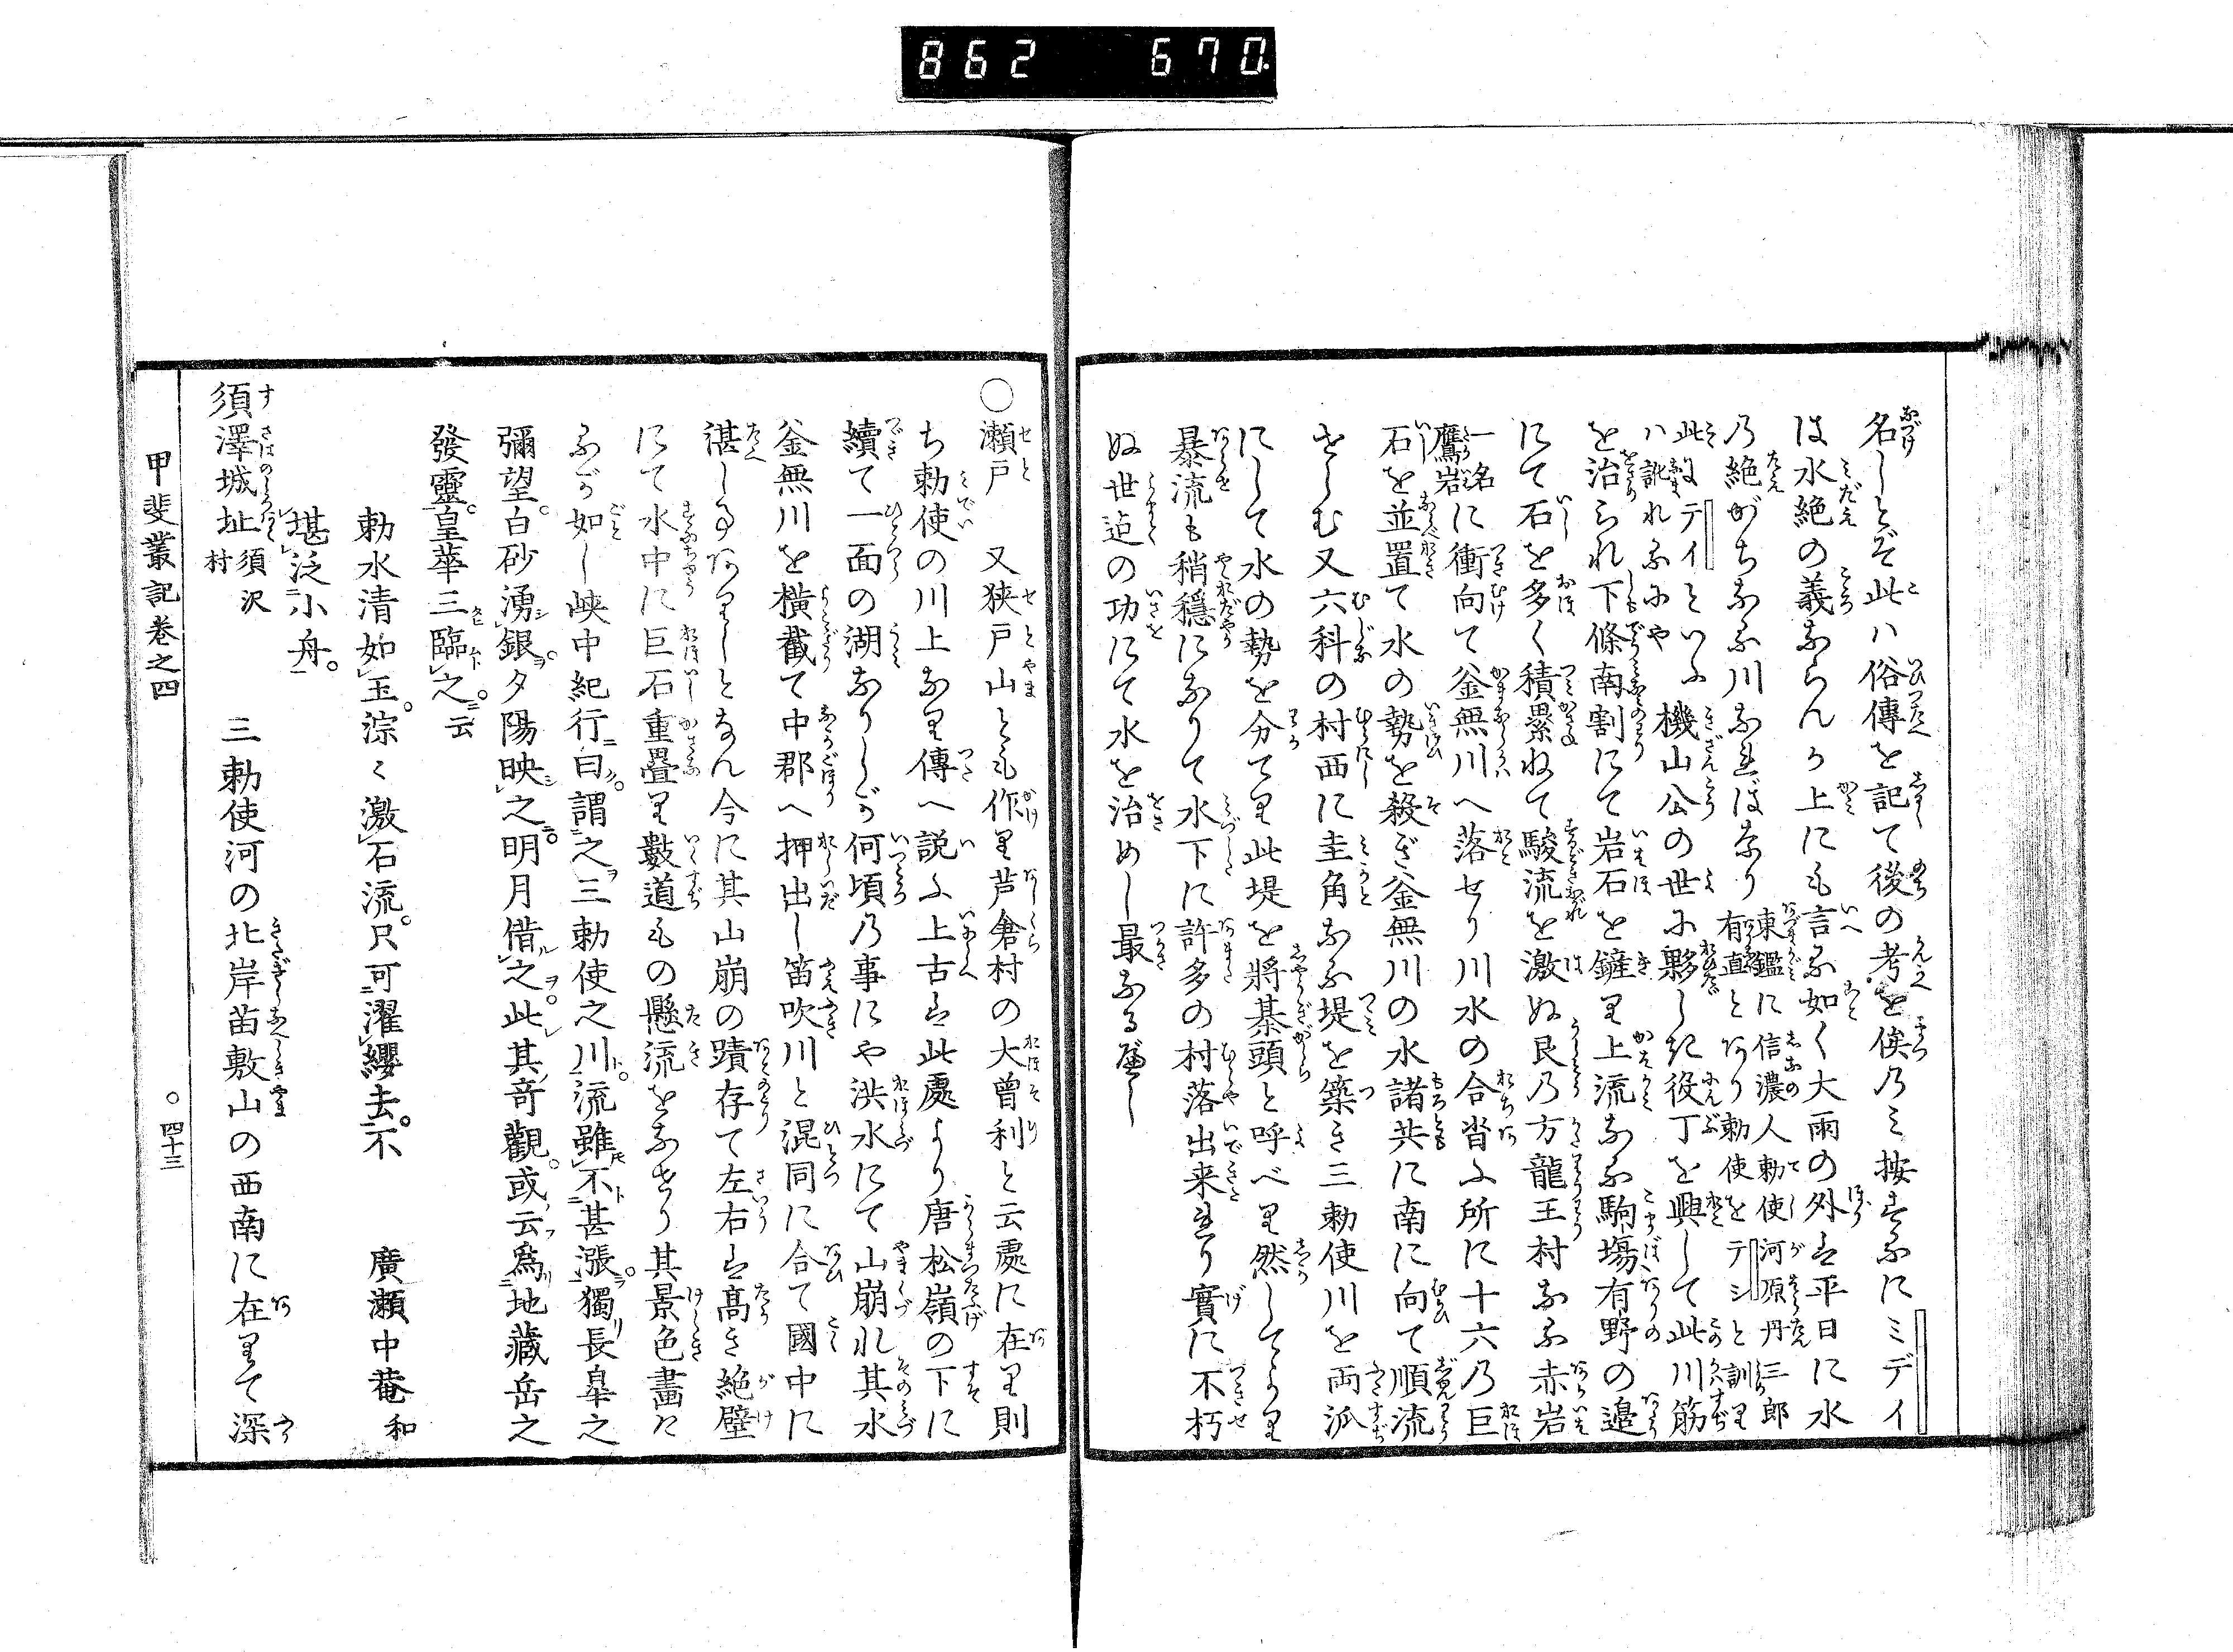 862 670.
名しとぞ此ハ俗傳を記て後の考を俟乃ミ按ずるにミデイ
は水絶の義ならんか上にも言る如く大雨の外は平日に水
乃絶がちなる川なればなり東鑑に信濃人勅使河原丹三郎
有直とあり勅使をテシと訓り
此にテイといふ
ハ訛れるにや機山公の世に夥しき役丁を興して此川筋
を治られ下條南割にて岩石を鏟り上流なる駒塲有野の邉
にて石を多く積累ねて駿流を激ぬ艮乃方龍王村なる赤岩
一名
鷹岩に衝向て釜無川へ落せり川水の合沓ふ所に十六乃巨
石を並置て水の勢を殺ぎ釜無川の水諸共に南に向て順流
せしむ又六科の村西に圭角なる堤を築き三勅使川を両派
にして水の勢を分てり此堤を將棊頭と呼べり然してより
暴流も稍穏になりて水下に許多の村落出来れり實に不朽
ぬ世迠の功にて水を治めし最なるべし
○瀬戸 又狭戸山とも作り芦倉村の大曽利と云處に在り則
ち勅使の川上なり傳へ説ふ上古は此處より唐松嶺の下に
續て一面の湖なりしが何頃乃事にや洪水にて山崩れ其水
釜無川を横截て中郡へ押出し笛吹川と混同に合て國中に
湛し事ありしとなん今に其山崩の蹟存て左右は髙き絶壁
にて水中に巨石重疊り數道もの懸流をなせり其景色畵た
るが如し峡中紀行曰謂之三勅使之川流雖不甚漲獨長皐之
彌望白砂湧銀夕陽映之明月借之此其奇觀或云爲地藏岳之
發靈皇華三臨之云
廣瀬中菴和
勅水清如玉淙々激石流尺可濯纓去不
堪泛小舟
須澤城址 須沢村 三勅使河の北岸苗敷山の西南に在りて深
甲斐叢記巻之四 ○四十三